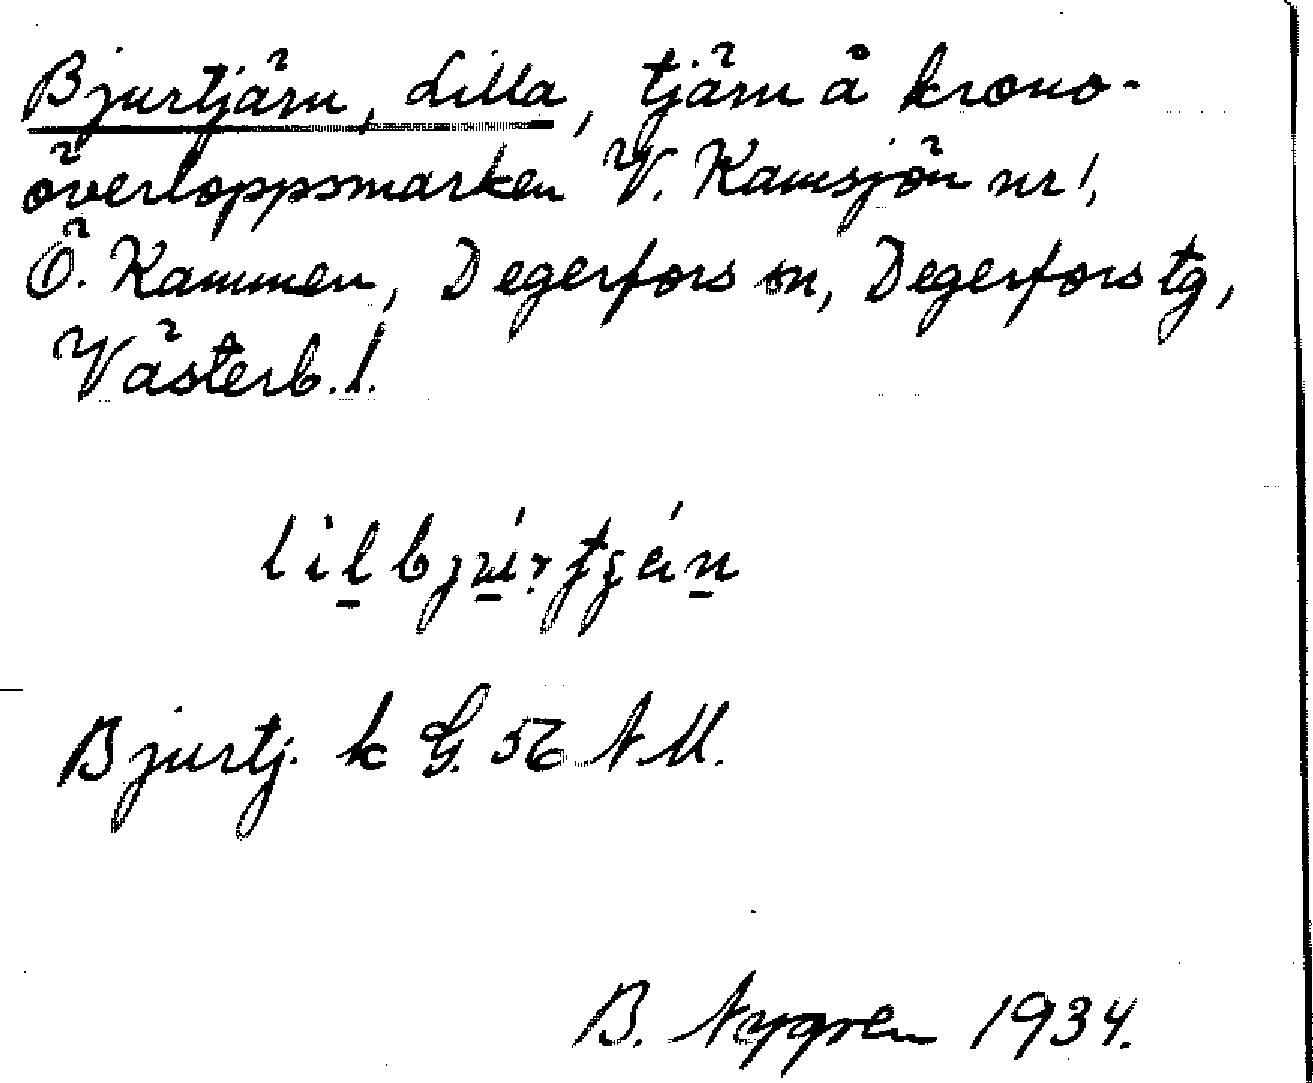 Bjurtjärn, Lilla, tjärn å krono-
överloppsmarken V. Kamsjön nr 1,
Ö. Kammen, Degerfors sn, Degerfors tg,
Västerb. l.
Bjurtj. k G. 56 NM.
B. Nygren 1934.